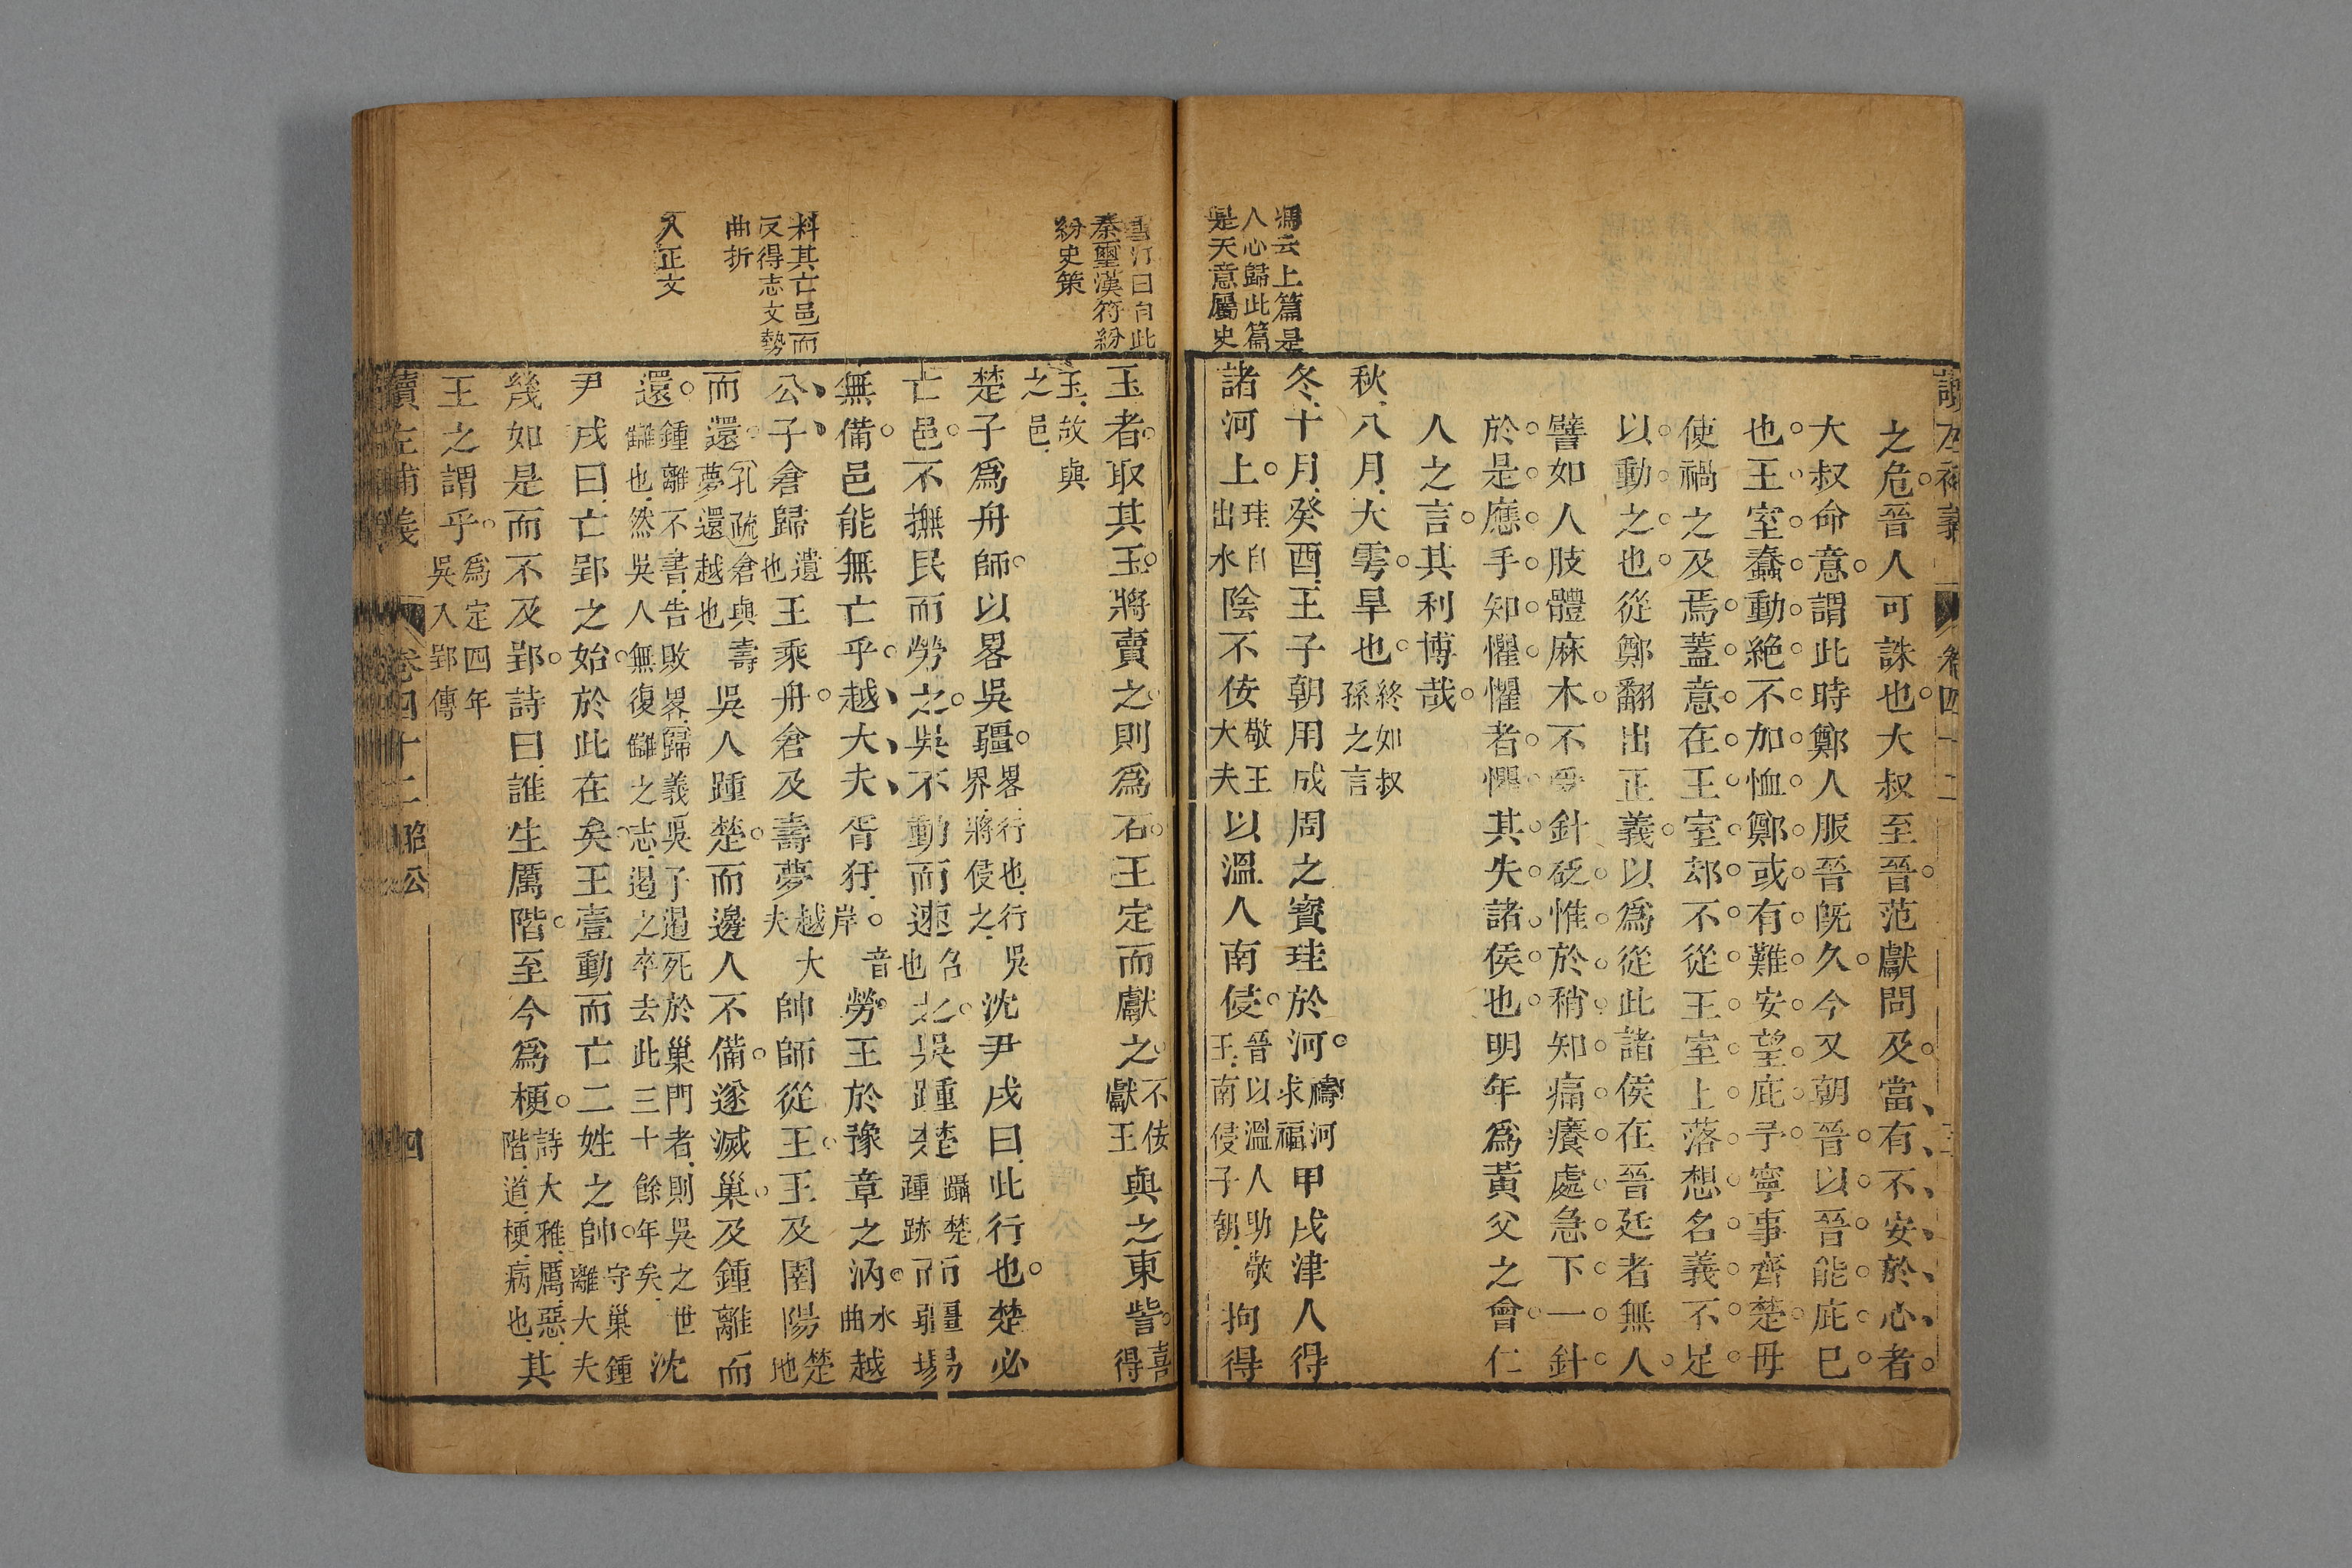 讀左補義 卷四十二
之危晉人可誅也大叔至晉范獻問及當有不安於心者
大叔命意謂此時鄭人服晉既久今又朝晉以晉能庇巳
也王室蠢動絶不加恤鄭或有難安望庇予寧事齊楚毋
使禍之及焉蓋意在王室却不從王室上落想名義不足
以動之也從鄭翻出正義以爲從此諸侯在晉廷者無人
譬如人肢體麻木不受針砭惟於稍知痛癢處急下一針
於是應手知懼懼者懼其失諸侯也明年爲黃父之會仁
人之言其利博哉
秋八月大雩旱也終如叔孫之言
馮云上篇是人心歸此篇是天意屬史
冬十月癸酉王子朝用成周之寶珪於河禱河求福甲戌津人得
諸河上珪自出水陰不佞敬王大夫以溫人南侵晉以溫人助敬王南侵子朝拘得
雪汀曰自此秦璽漢符紛紛史策
玉者取其玉將賣之則爲石王定而獻之不佞獻王與之東訾喜得
玉故與之邑
楚子爲舟師以畧吳疆畧行也行吳界將侵之沈尹戌曰此行也楚必
亡邑不撫民而勞之吳不動而速之速召也吳踵楚躡楚踵跡而疆埸
料其亡邑而反得志文勢曲折
無備邑能無亡乎越大夫胥犴岸音勞王於豫章之汭水曲越
公子倉歸遺也王乘舟倉及壽夢越大夫帥師從王王及圉陽楚地
而還孔疏倉與壽夢還越也吳人踵楚而邊人不備遂滅巢及鍾離而
入正文
還鍾離不書告敗畧歸義吳子遏死於巢門者則吳之世讎也然吳人無復讎之志遏之卒去此三十餘年矣沈
尹戌曰亡郢之始於此在矣王壹動而亡二姓之帥守巢鍾離大夫
幾如是而不及郢詩曰誰生厲階至今爲梗詩大雅厲惡階道梗病也其
王之謂乎爲定四年吳入郢傳
讀左補義 卷四十二 昭公 四